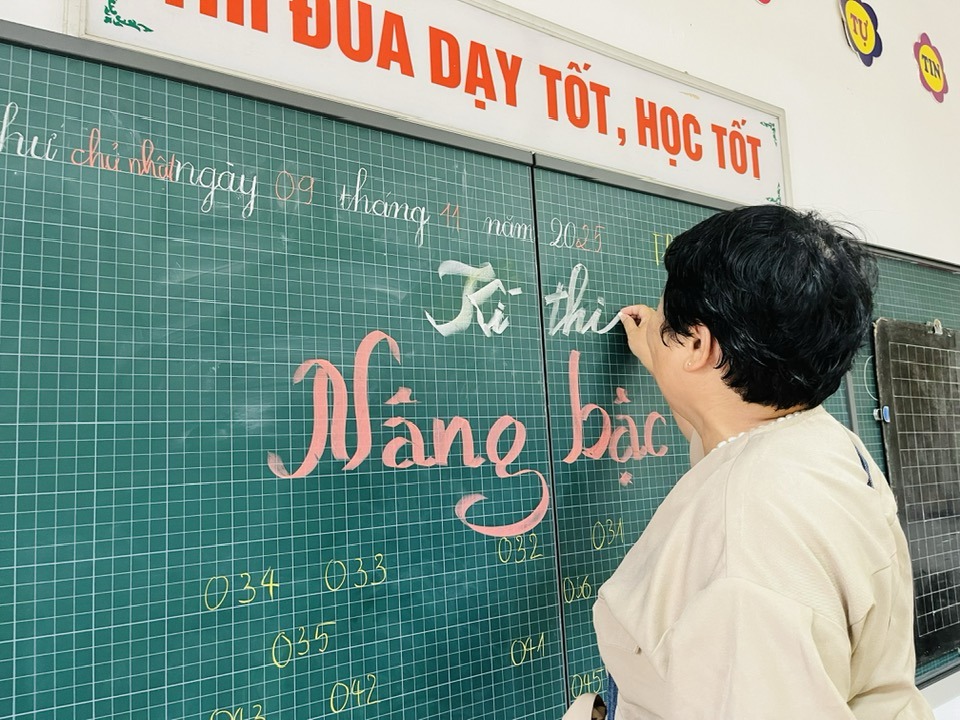 THI ĐUA DẠY TỐT, HỌC TỐT
TỰ
TIN
chủ nhật ngày 09 tháng 11 năm 2025
Kì thi
Nâng bậc
032 031
034 033 036
035 041
042 045